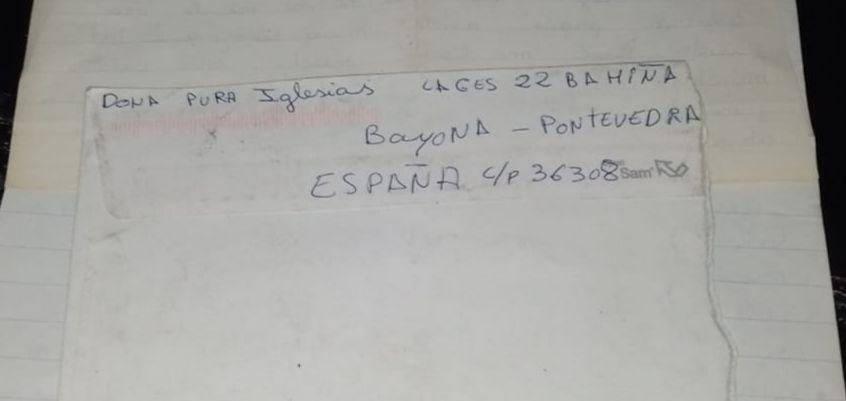 DONA PURA Iglesias LAGES 22 BAHIÑA
BayoNA - PONTEVEDRA
ESPAÑA C/P 36308
Sam